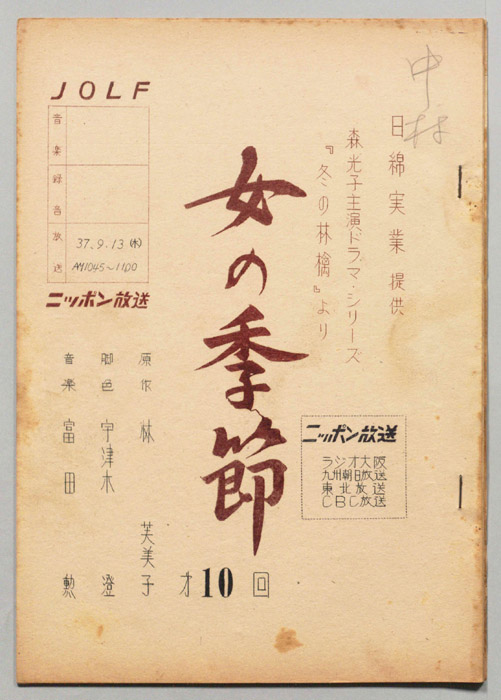 中村
日綿実業提供
森光子主演ドラマ・シリーズ
『冬の林檎』より
女の季節
才10回
JOLF
音楽
録音
放送 37.9.13(木)
AM1045~1100
ニッポン放送
原作 林 芙美子
脚色 宇津木 澄
音楽 富田 勲
ニッポン放送
ラジオ大阪
九州朝日放送
東北放送
CBC放送